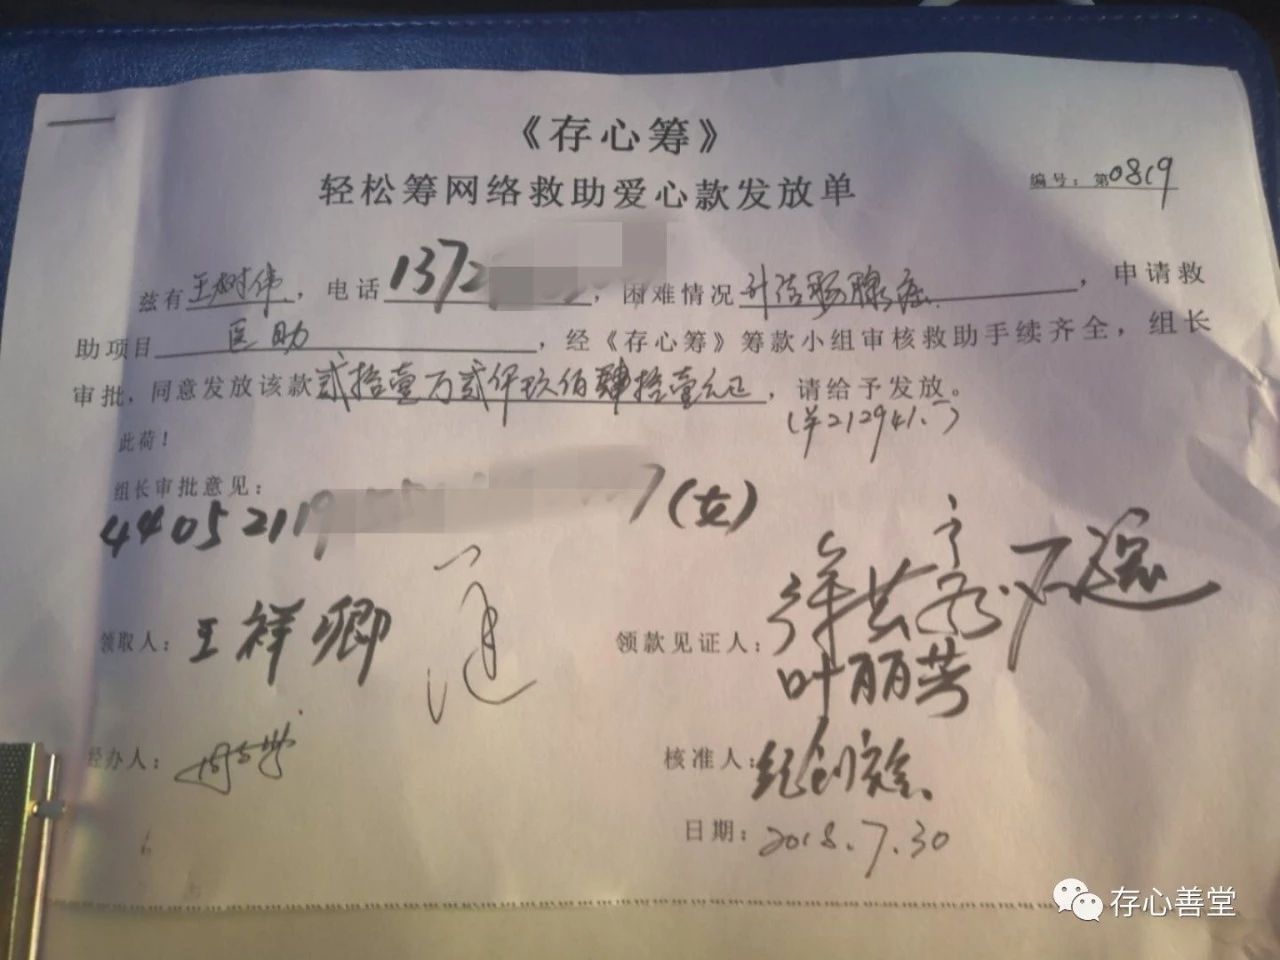 《存心筹》
轻松筹网络救助爱心款发放单
编号：第0819
兹有王树伟，电话137，困难情况升结肠腺癌，申请救
助项目医助，经《存心筹》筹款小组审核救助手续齐全，组长
审批，同意发放该款贰拾壹万贰仟玖佰肆拾壹元正，请给予发放。
(￥212941.-)
此荷！
组长审批意见：
44052119 7(女)
领取人：王祥卿
领款见证人：
叶丽芳
经办人：
核准人：
日期：2018.7.30
存心善堂